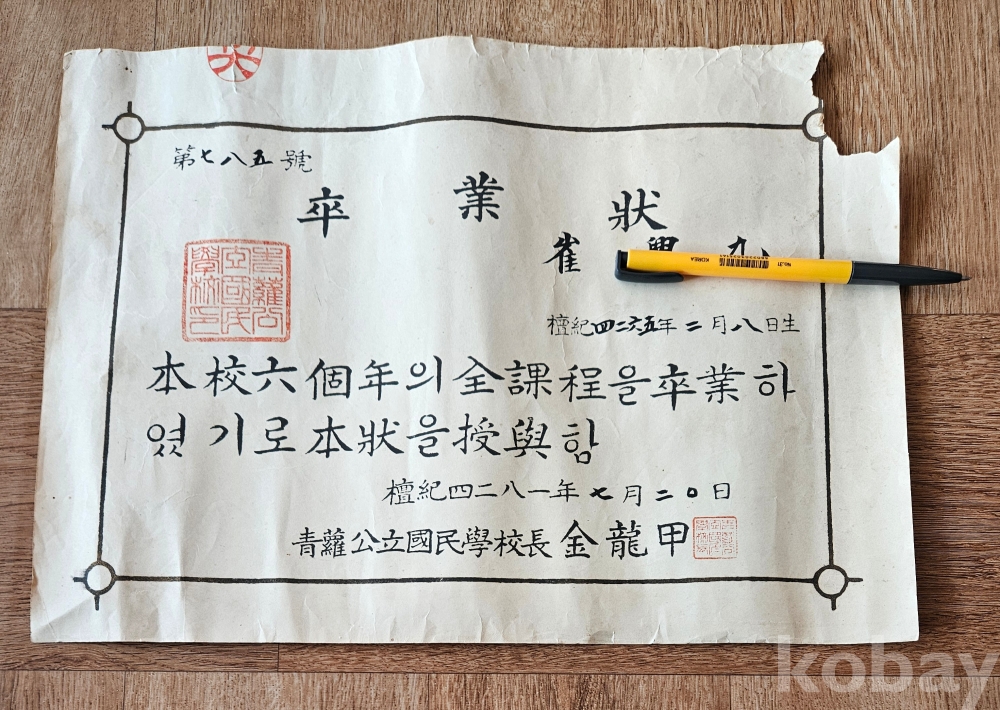 第七八五號
卒業狀
崔 九
檀紀四二六五年二月八日生
靑蘿公
立國民
本校六個年의全課程을卒業하
였기로本狀을授與함
檀紀四二八一年七月二0日
青蘿公立國民學校長 金龍甲
KOREA
kobay